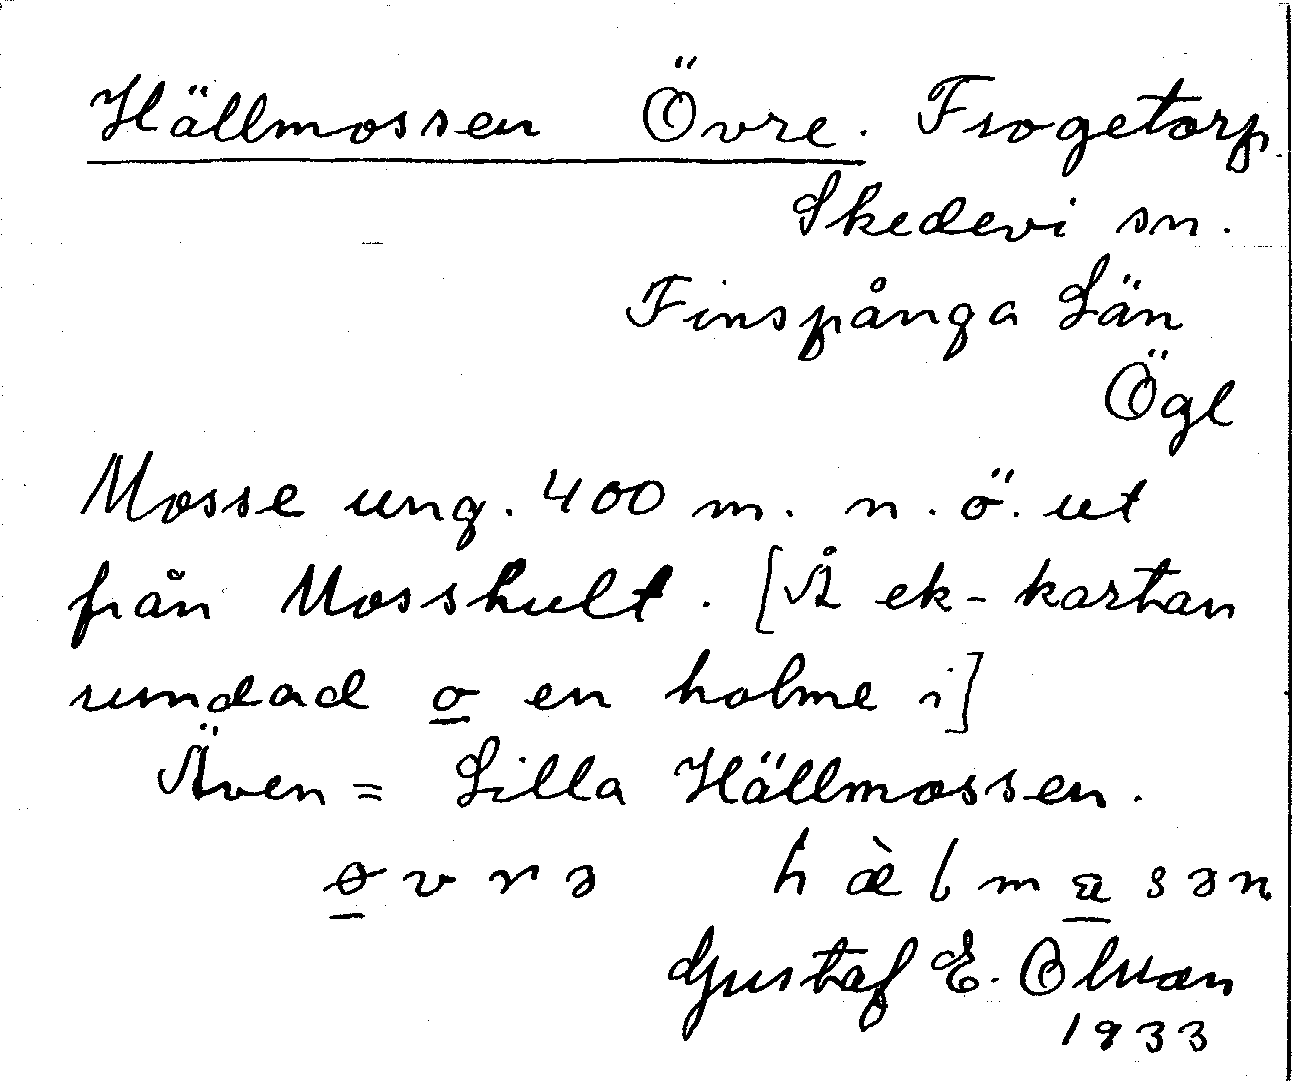 Hällmossen Övre. Frogetorp.
Skedevi sn.
Finspånga Län
Ögl
Mosse ung. 400 m. n. ö. ut
från Mosshult. [Å ek-kartan
rundad o en holme i]
Även = Lilla Hällmossen.
øvrə hæ̀lmasən
Gustaf E. Olsson
1933